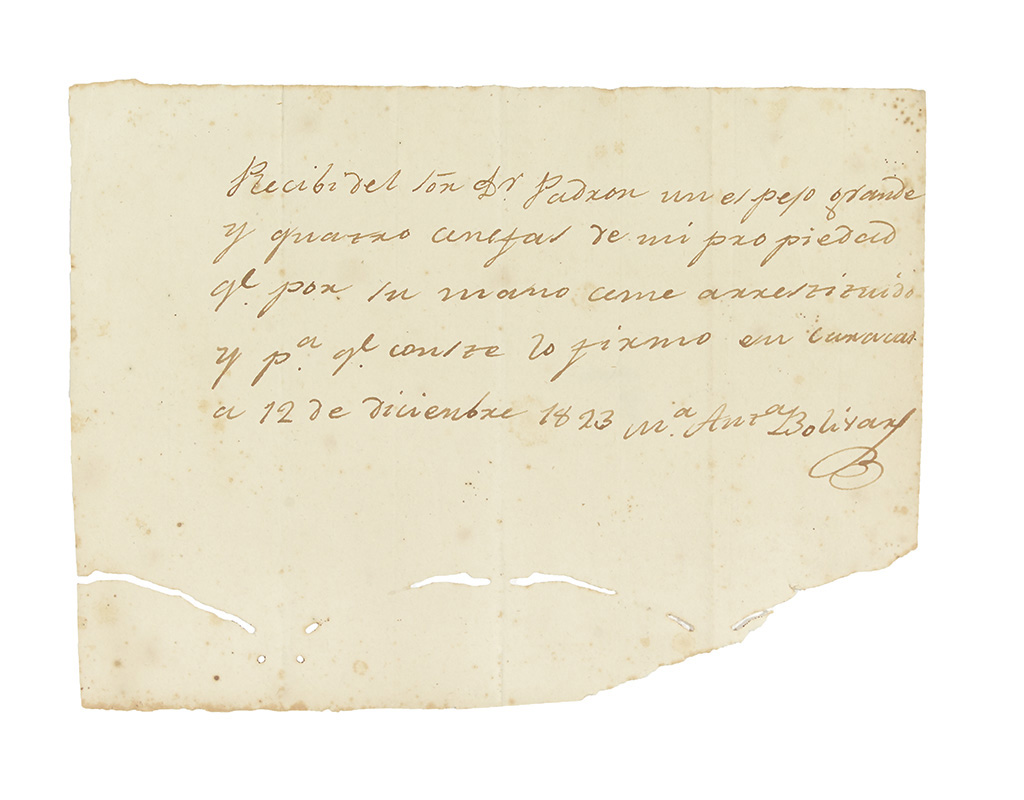 Recibi del Sōr Dr. Padron un espejo grande
y quatro cenefas de mi propiedad
ql. por su mano ceme arrestituido
y pa. ql. conste lo firmo en Caracas
a 12 de diciembre 1823 Ma. Anta Bolivar